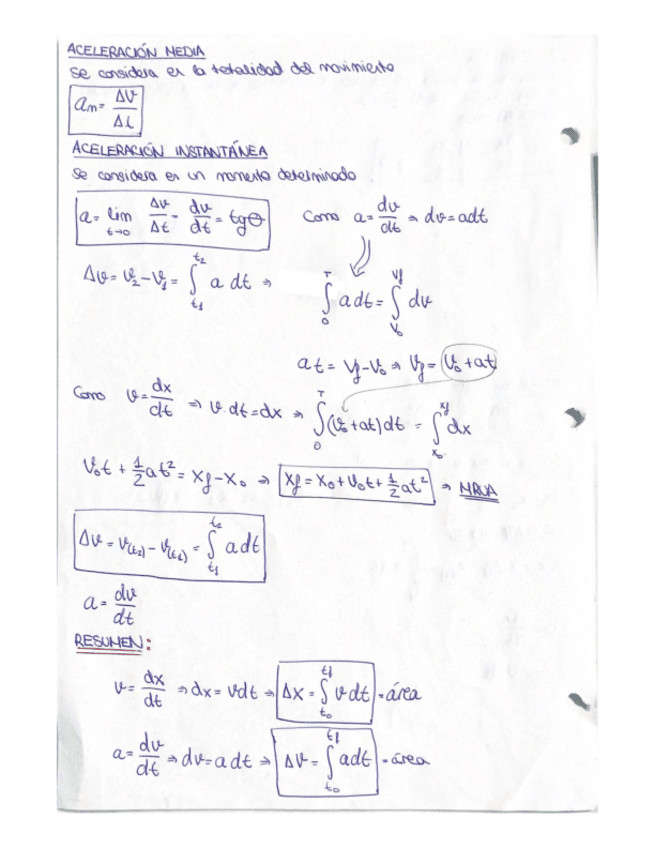 ACELERACIÓN MEDIA
Se considera en la totalidad del movimiento
am = ΔV/Δt
ACELERACIÓN INSTANTÁNEA
Se considera en un momento determinado
a = lim t→0 Δv/Δt = dv/dt = tgθ Como a = dv/dt ⇒ dv = adt
Δv = v₂ - v₁ = ∫t₁^t₂ a dt ⇒ ∫₀^T a dt = ∫V₀^Vf dv
at = Vf - V₀ ⇒ Vf = V₀ + at
Como v = dx/dt ⇒ v·dt = dx ⇒ ∫₀^T (V₀ + at) dt = ∫x₀^xf dx
V₀t + 1/2 at² = Xf - X₀ ⇒ Xf = X₀ + V₀t + 1/2 at² ⇒ MRUA
Δv = V(t₂) - V(t₁) = ∫t₁^t₂ a dt
a = dv/dt
RESUMEN:
v = dx/dt ⇒ dx = vdt ⇒ Δx = ∫t₀^tf v dt = área
a = dv/dt ⇒ dv = a dt ⇒ Δv = ∫t₀^tf adt = área